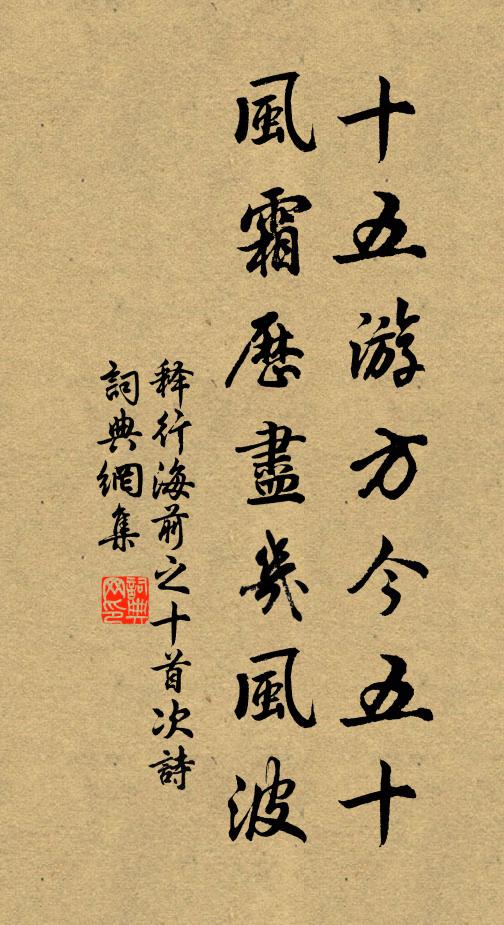 十五游方今五十
風霜歷盡幾風波
释行海前之十首次詩
詞典網集
詞典網印